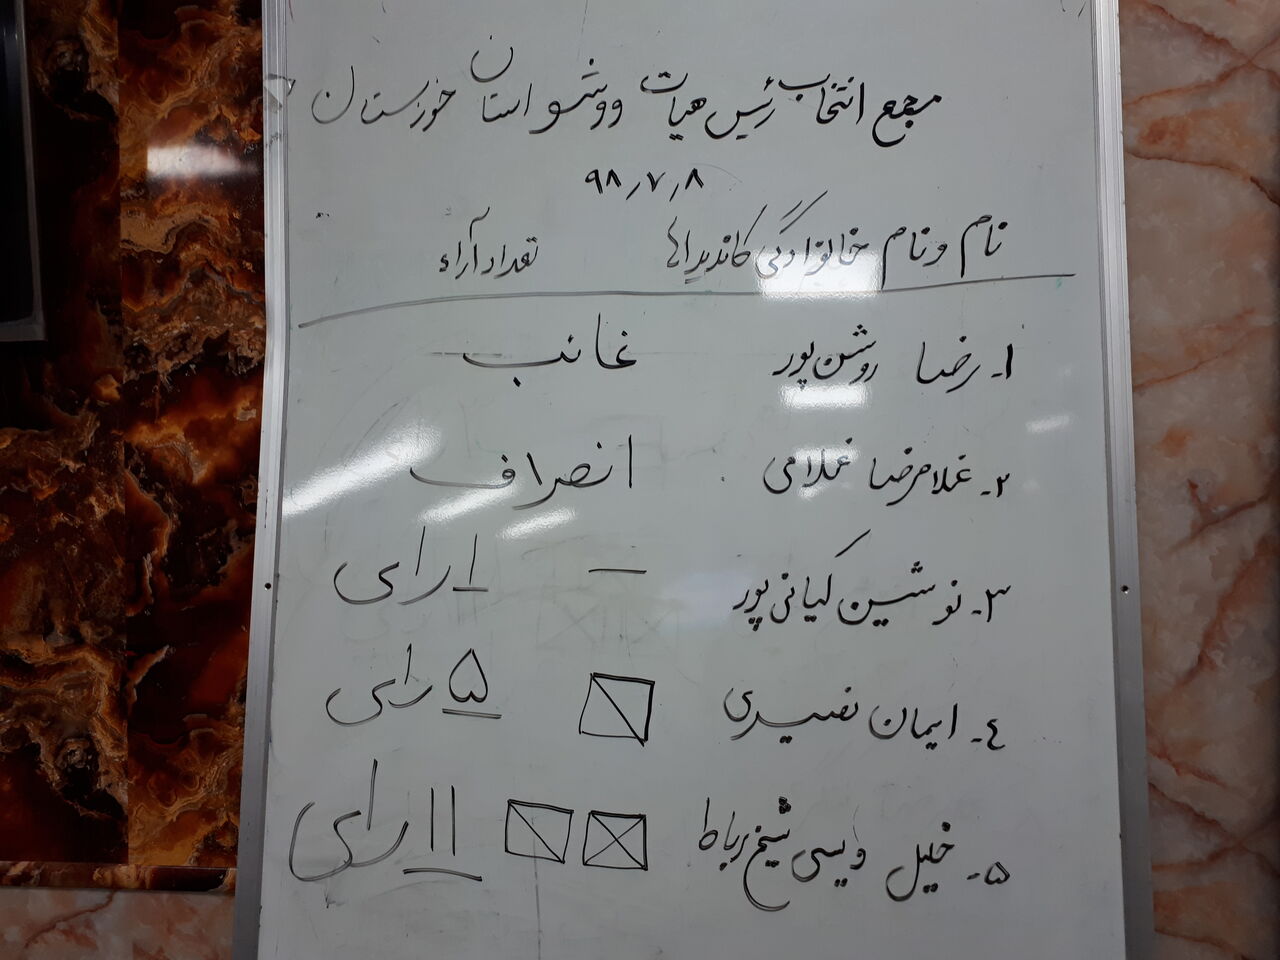 مجمع انتخاب رئیس هیات ووشو استان خوزستان
۹۸٫۷٫۸
نام و نام خانوادگی کاندیداها تعداد آراء
۱- رضا روشن پور غائب
۲- غلامرضا غلامی انصراف
۳- نوشین کیانی پور ۱ رای
٤- ایمان نصیری ۵ رای
۵- خلیل ویسی شیخ رباط ۱۱ رای